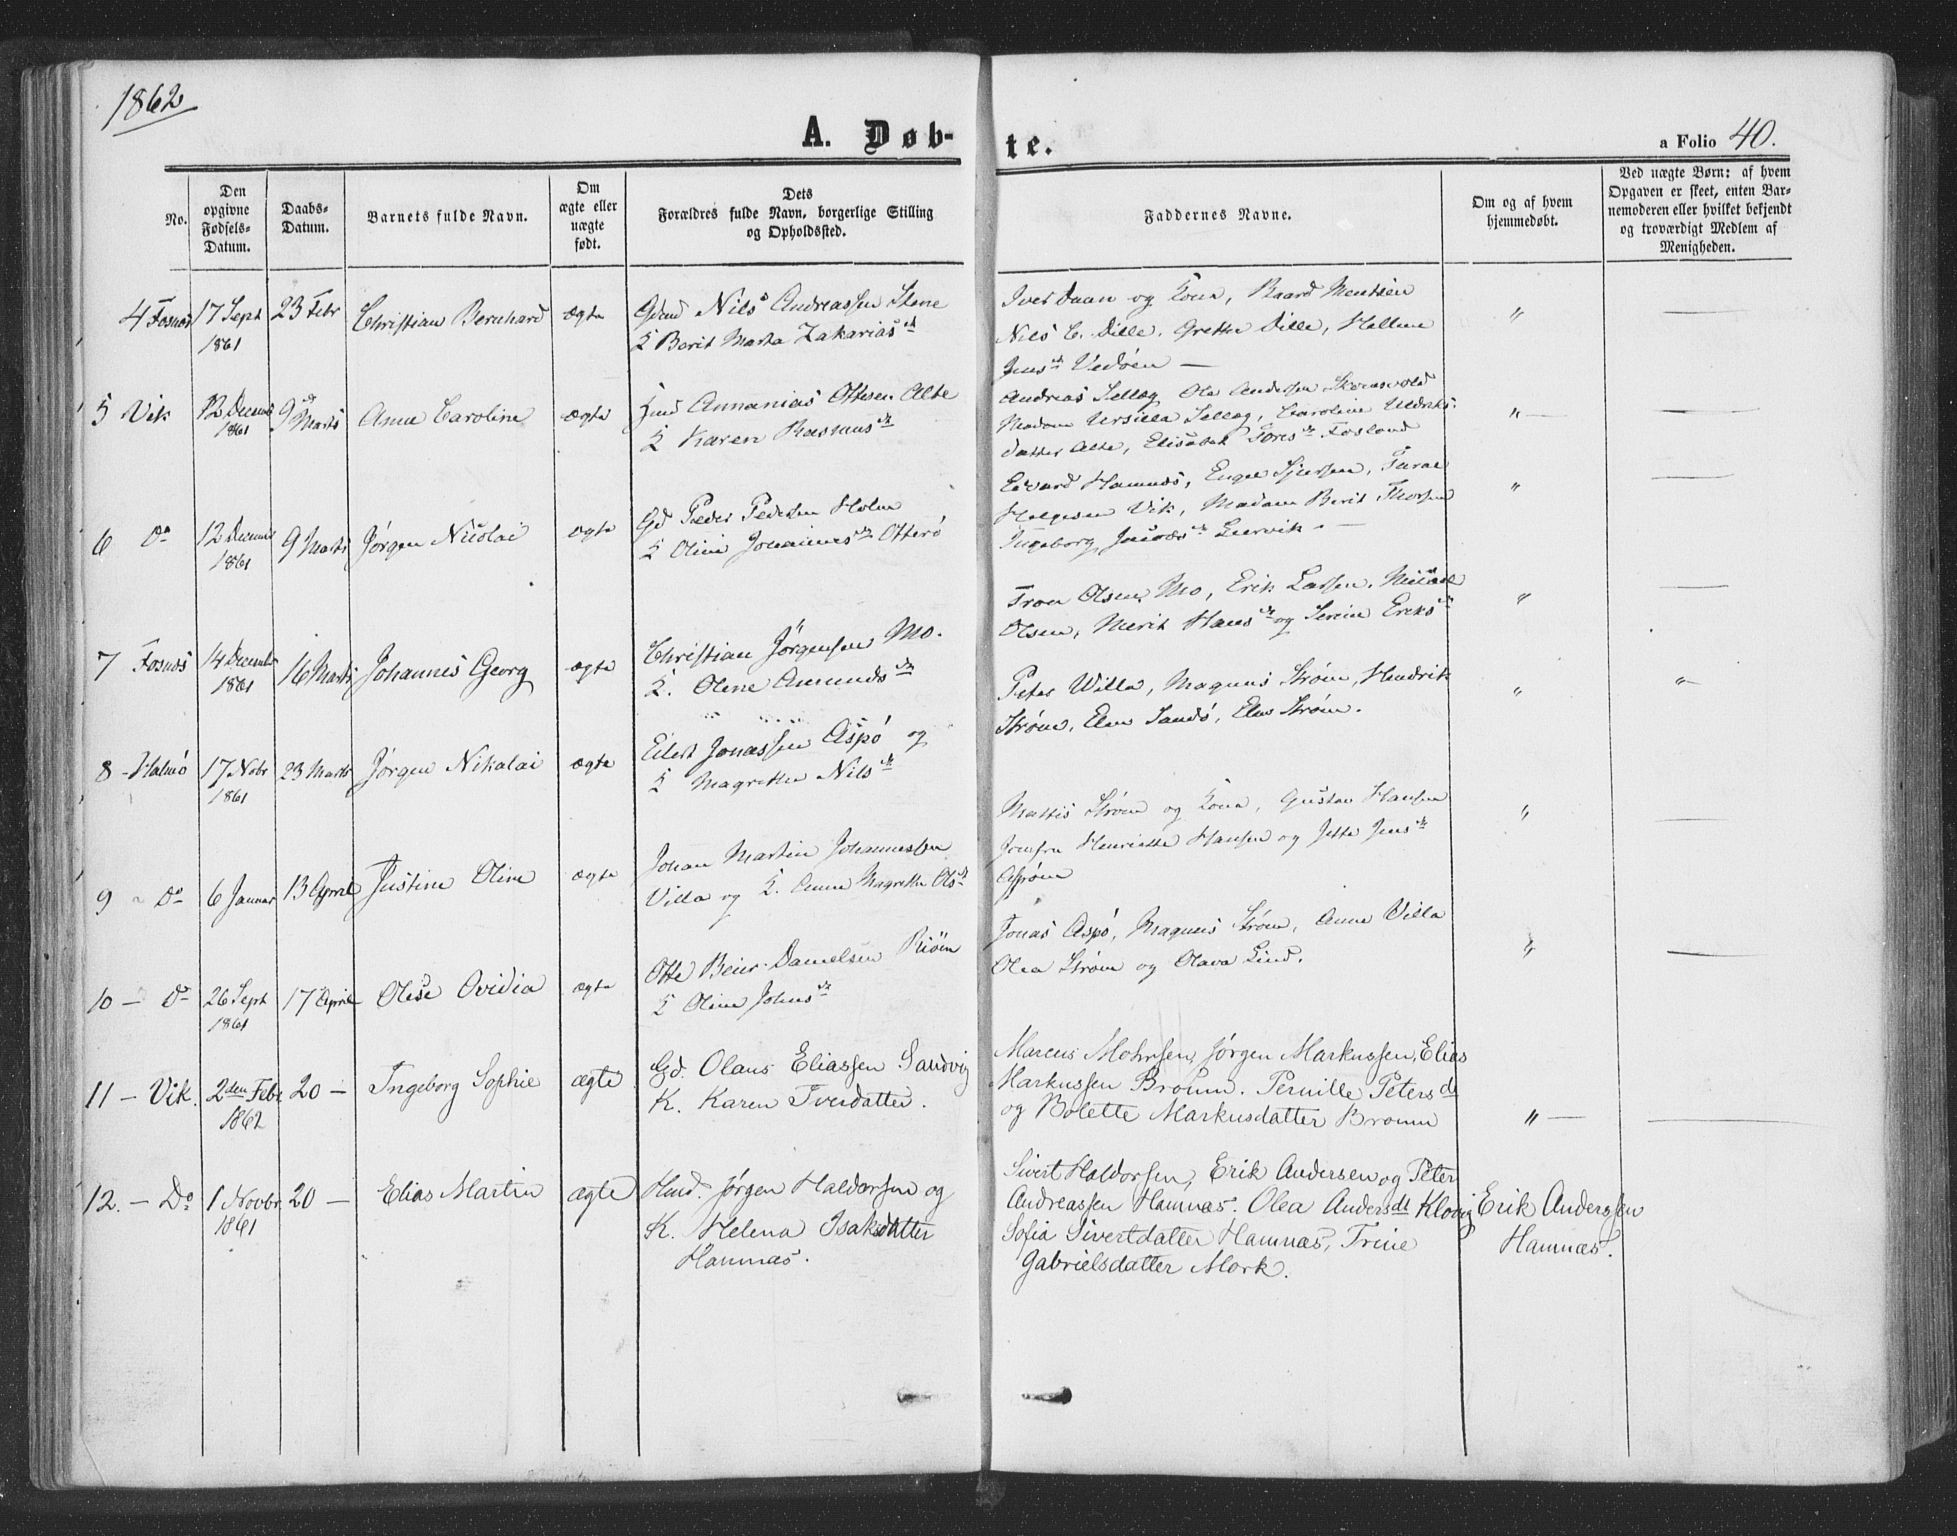 1862
A. Døb-
te.
a Folio 40.
No.
Den
opgivne
Fødsels-
Datum.
Daabs-
Datum.
Barnets fulde Navn.
Om
ægte eller
uægte
født.
Dets
Forældres fulde Navn, borgerlige Stilling
og Opholdssted.
Faddernes Navne.
Om og af hvem
hjemmedøbt.
Ved uægte Børn: af hvem
Opgaven er skeet, enten Bar-
nemoderen eller hvilket bekjendt
og troværdigt Medlem af
Menigheden.
4 Fosnæs
17 Sept
1861
23 Febr
Christian Bernhard
ægte
Nils Andreassen
K Berit Marta Zakarias dt
Iver Duun og Kona, Baard
Nils C. Dille, Grethe Dille,
Jens dt Vedöen —
"
—
5 Vik
12 Decemb
1861
9 Marts
Anna Caroline
ægte
Hmd Annanias Ottesen Alte
K Karen Rasmus dt
Andreas Sellæg Ole Andersen
Madam Ursilla Sellæg, Caroline Uldriks-
datter Alte, Elisabet Fosland
" —
—
6 Do
12 Decemb
1861
9 Marts
Jørgen Nicolai
ægte
Gd Peder Pedersen Holm
K Oline Johannes dt Otterö
Edvard Hamnæs,
Helgesen Vik, Madam Berit Thorsen
Ingeborg Leervik —
"
—
7 Fosnæs
14 Decembr
1861
16 Marts
Johannes Georg
ægte
Christian Jörgensen Mo.
K. Olene Amunds dt
Tron Olsen Mo, Erik Larsen,
Olsen, Merit Hans dt og Serine Eriks dt
"
—
8 - Halmö
17 Nobr
1861
23 Marts
Jørgen Nikolai
ægte
Eilert Jonassen Aspö og
K Magrethe Nils dt
Peter Willa, Magnus Strøm, Hendrik
Strøm, Elen Sandö, Elen Strøm.
"
" —
9 - Do
6 Januar
13 April
Justine Oline
ægte
Johan Martin Johannessen
Villa og K. Anne Magrethe Ols dt
Mattis Strøm og Kona, Gustav Hansen
Jomfru Henriette Hansen og Jette Jens dt
"
—
10 — Do
26 Sept
1861
17 April
Olise Ovidia
ægte
Otte Beier Danielsen
K Oline Johns dt
Jonas Aspö, Magnus Strøm, Anne Villa
Olea Strøm og Olava Lind.
"
—
11 — Vik.
2den Febr.
1862
20 —
Ingeborg Sophie
ægte
Gd. Olaus Eliassen Sandvig
K. Karen Iverdatter.
Marcus Mohrsen, Jørgen Markussen, Elias
Markussen Broum. Pernille Peters dt
og Bolette Markusdatter Broum
" —
—
12. — Do
1 Novbr
1861
20 —
Elias Martin
ægte
Hmd. Jørgen Haldorsen og
K. Helena Isaksdatter
Hamnæs.
Sivert Haldorsen, Erik Andersen og Peter
Andreassen Hamnæs. Olea Anders dt Klovig
Sofia Sivertdatter Hamnæs, Trine
Gabrielsdatter Mork.
Erik Anderssen
Hamnæs.